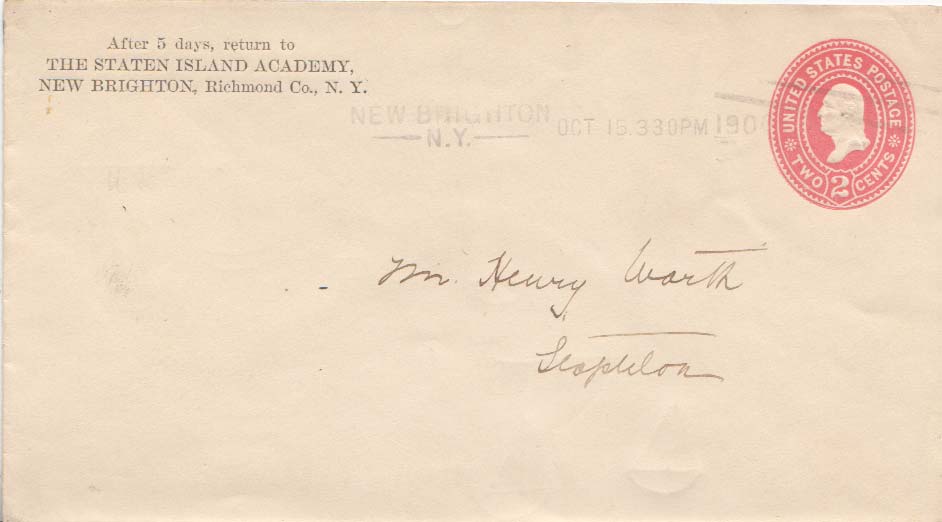 After 5 days, return to
THE STATEN ISLAND ACADEMY,
NEW BRIGHTON, Richmond Co., N. Y.
NEW BRIGHTON
N.Y.
OCT 15.330PM 190
UNITED STATES POSTAGE
TWO 2 CENTS
Mr. Henry Worth
Stapleton